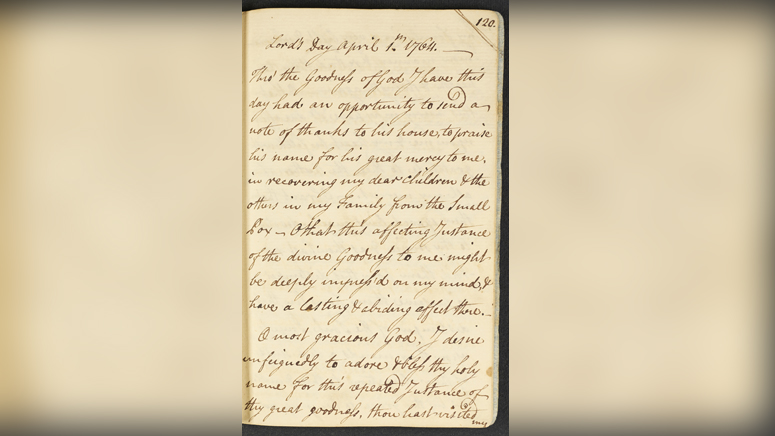 120.
Lord's Day April 1.st 1764.
Thro' the Goodness of God I have this
day had an opportunity to send a
note of thanks to his house, to praise
his name for his great mercy to me,
in recovering my dear Children & the
others in my Family from the Small
Pox - O that this affecting Instance
of the divine Goodness to me might
be deeply impress'd on my mind, &
have a lasting & abiding affect there.
O most gracious God, I desire
unfeignedly to adore & bless thy holy
name for this repeated Instance of
thy great goodness, thou hast visited
my